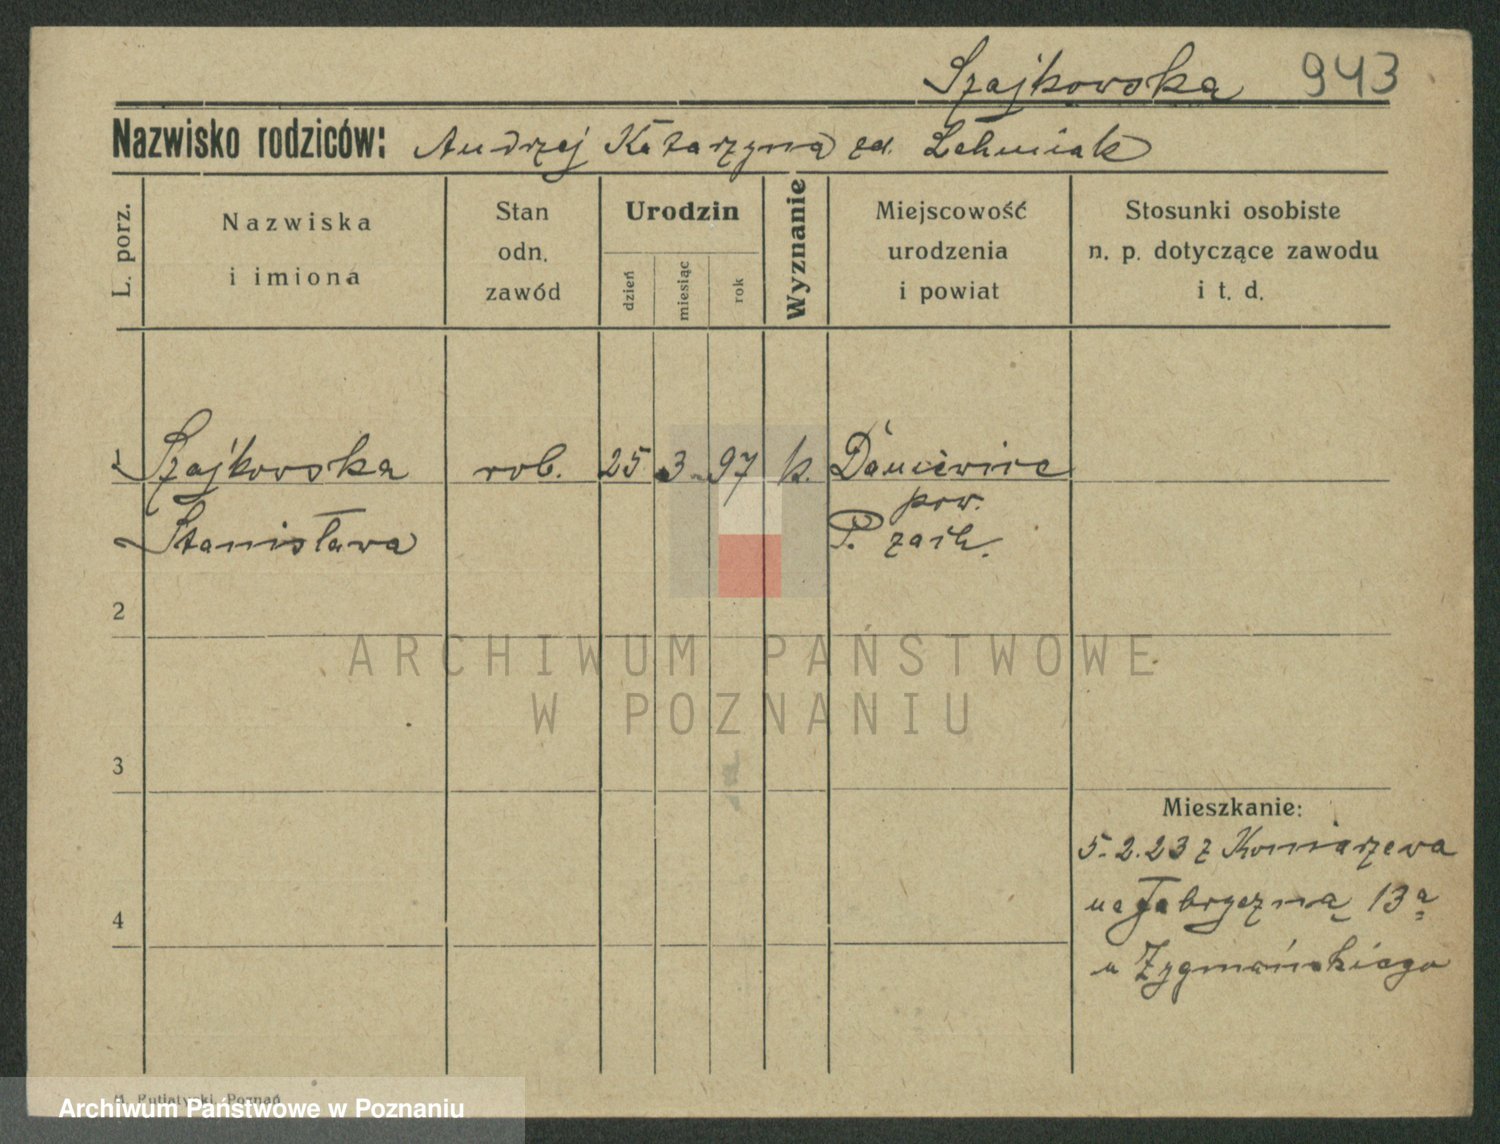 Szajkowska 943
Nazwisko rodziców: Andrzej Katarzyna zd. Lehmiak
L. porz.
Nazwiska
i imiona
Stan
odn.
zawód
Urodzin
dzień
miesiąc
rok
Wyznanie
Miejscowość
urodzenia
i powiat
Stosunki osobiste
n. p. dotyczące zawodu
i t. d.
1 Szajkowska rob. 25 3 97 k.
pow.
Stanisława P. zach.
2
ARCHIWUM PAŃSTWOWE
W POZNANIU
3
Mieszkanie:
5.2.23 z Koniarzewa
na Fabryczną 13a
4
u Zygmańskiego
Putiatycki, Poznań
Archiwum Państwowe w Poznaniu